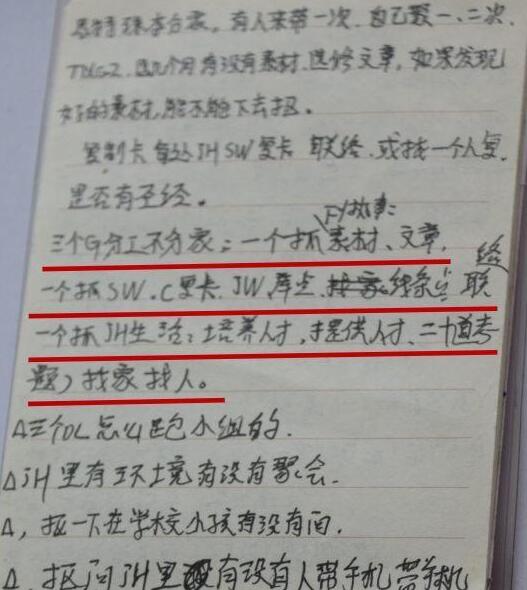 有人来带一次.自己数一、二次.
几个月有没有素材.进修文章,如果发现
好的素材,能不能下去抓。
复制卡每处JH SW复卡 联络.或找一个人复.
是否有圣经。
FY故事:
三个G分工不分家:一个抓素材、文章.
一个抓SW.C复卡.JW.库点.线条点 联络
一个抓JH生活:培养人才,提供人才、二十道考
题)找家找人。
△三个DL怎么跑小组的.
△JH里有环境有没有聚会.
△,抓一下在学校小孩有没有问.
△.抠问JH里有没有人带手机